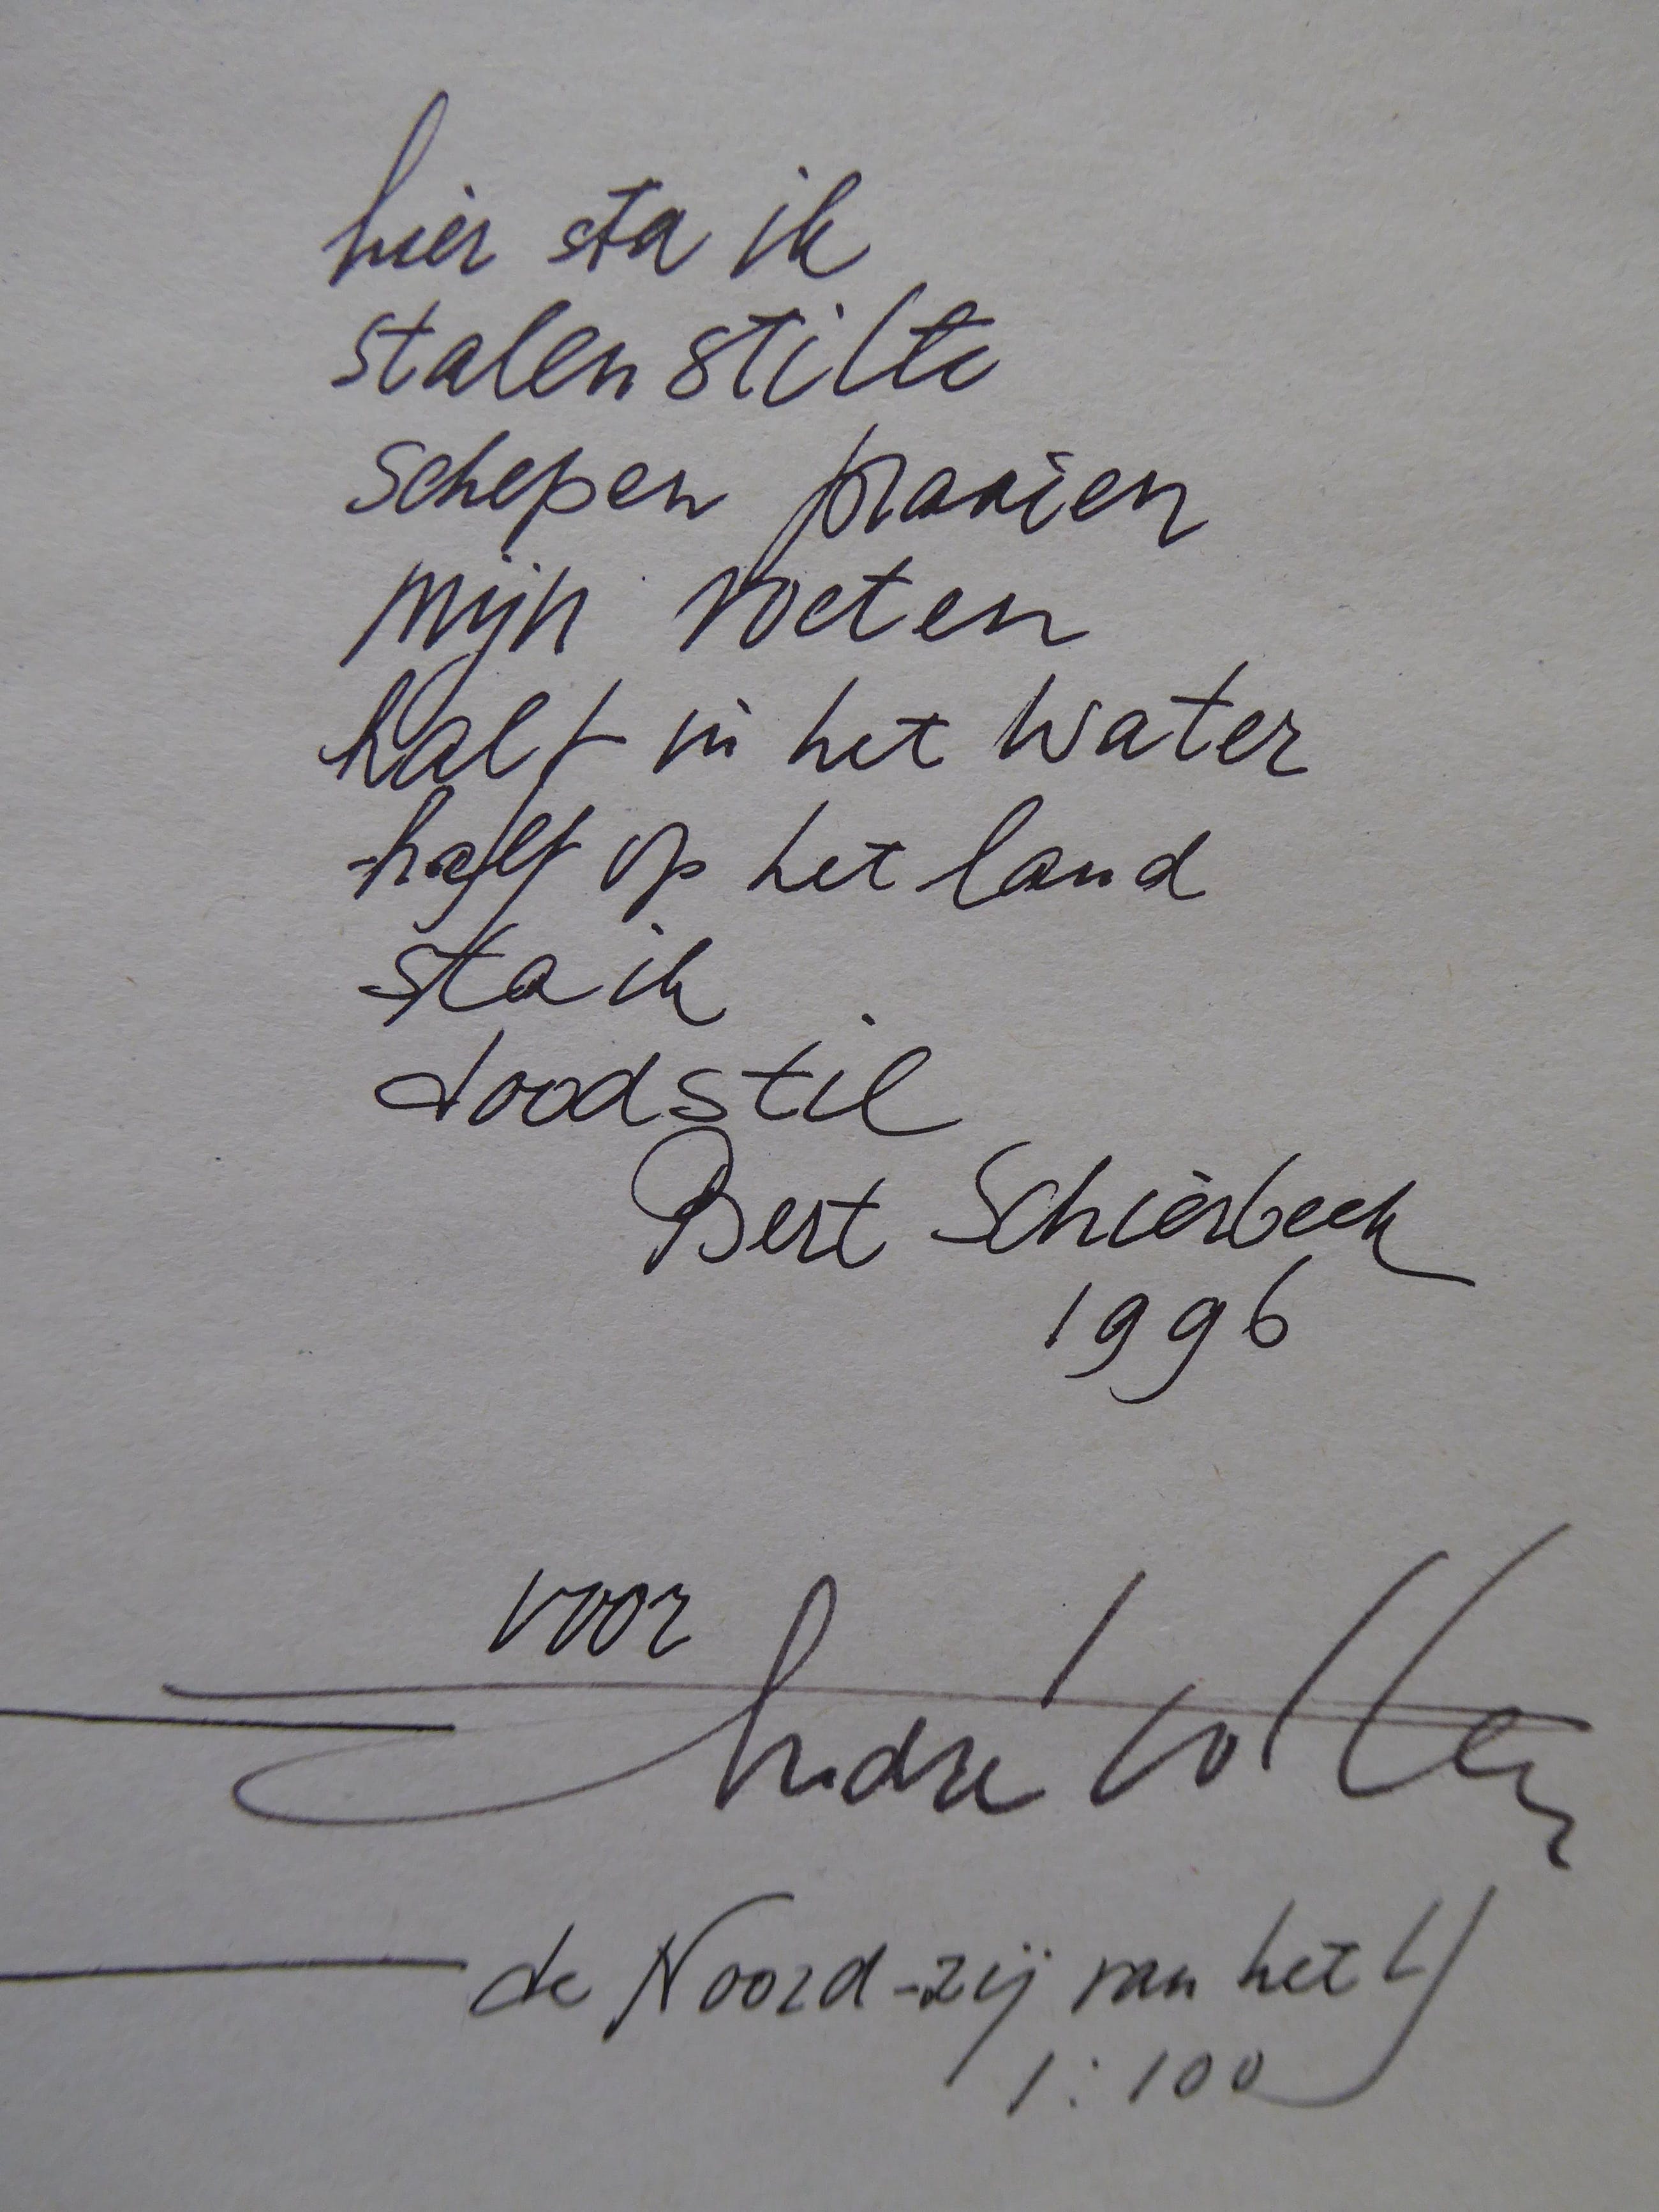 hier sta ik
stalen stilte
schepen praaien
mijn voeten
half in het water
half op het land
sta ik
doodstil
Bert Schierbeek
1996
voor
André Volten
de Noord-zij van het IJ
1:100